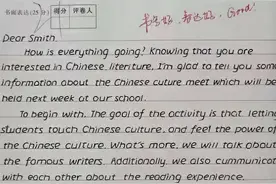 书面表达(25分) 得分 评卷人
书写好,表达好, Good!
Dear Smith,
How is everything going? Knowing that you are
interested in Chinese literiture, I'm glad to tell you some
information about the Chinese cuture meet which will be
held next week at our school.
To begin with, The goal of the activity is that letting
students touch Chinese Culture, and feel the power of
the Chinese culture. What's more, we will talk about
the famous writers. Additionally, we also communicat
with each other about the reading experience.